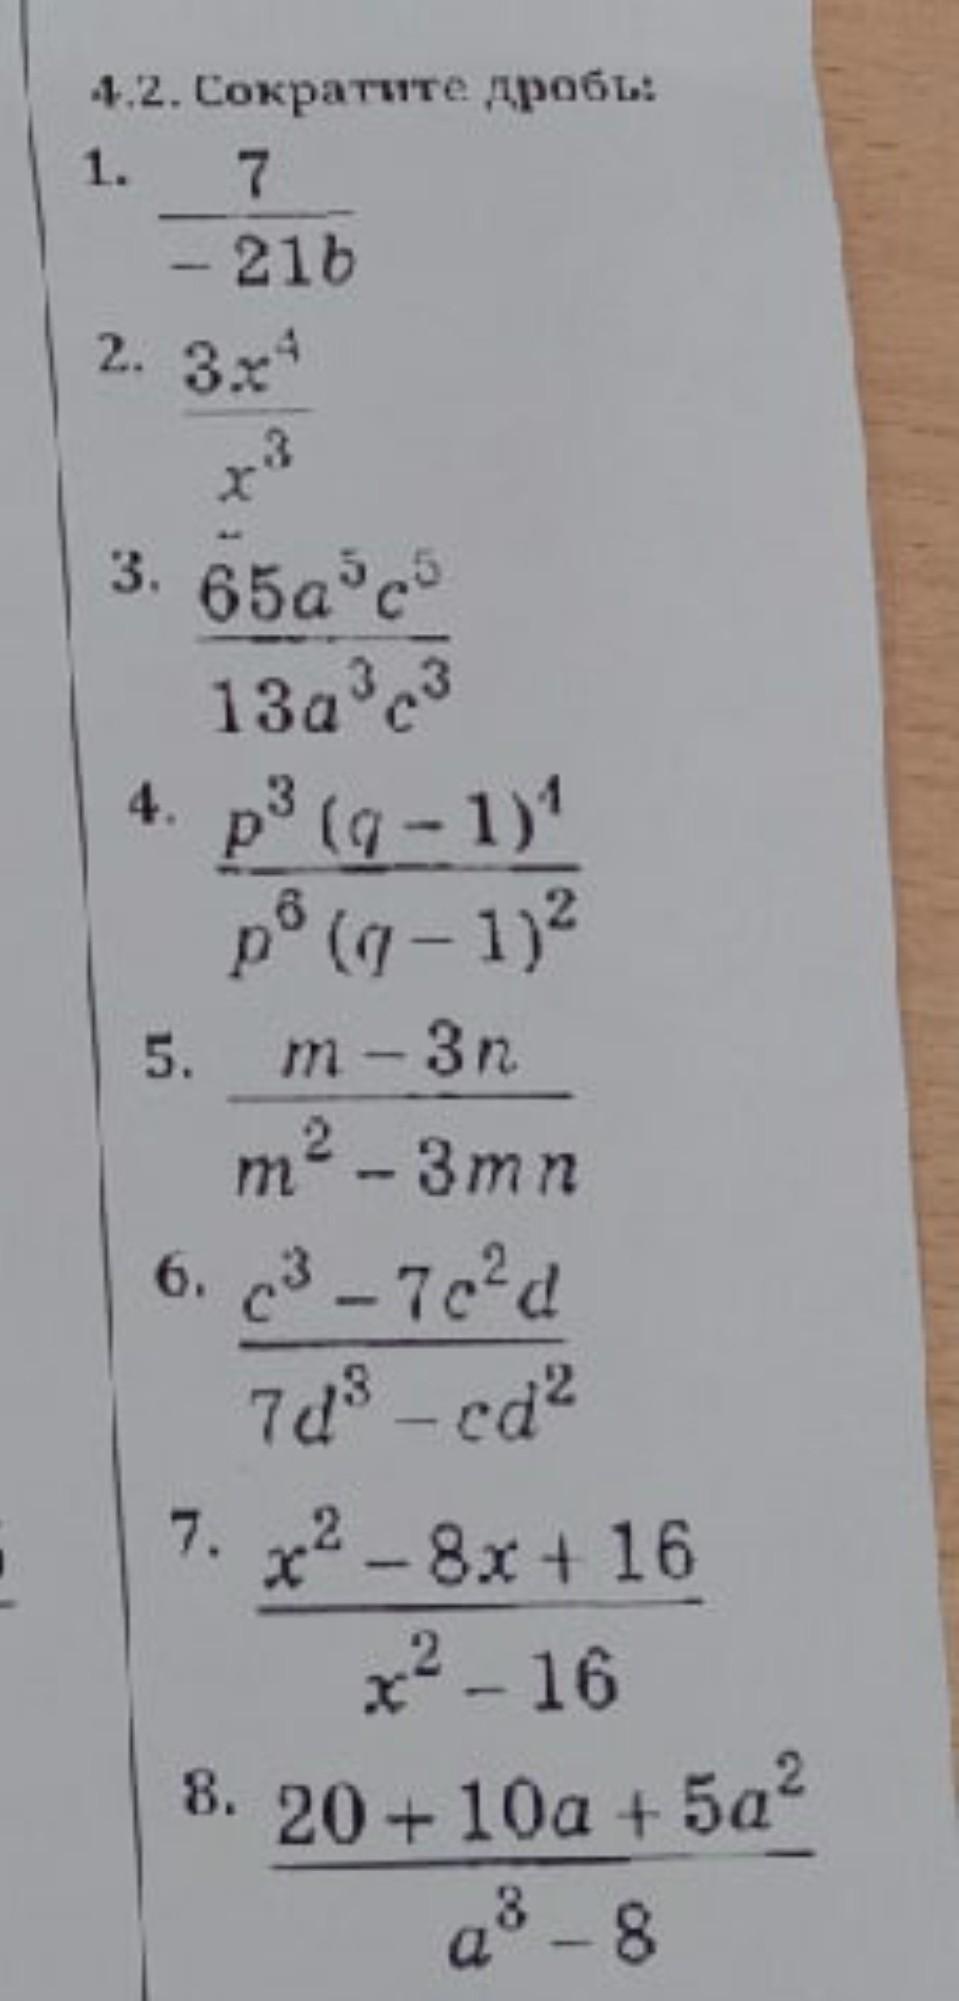 4.2. Сократите дробь:
1. 7
− 21b
2. 3x⁴
x³
3. 65a⁵c⁵
13a³c³
4. p³ (q − 1)⁴
p⁶ (q − 1)²
5. m − 3n
m² − 3mn
6. c³ − 7c²d
7d³ − cd²
7. x² − 8x + 16
x² − 16
8. 20 + 10a + 5a²
a³ − 8